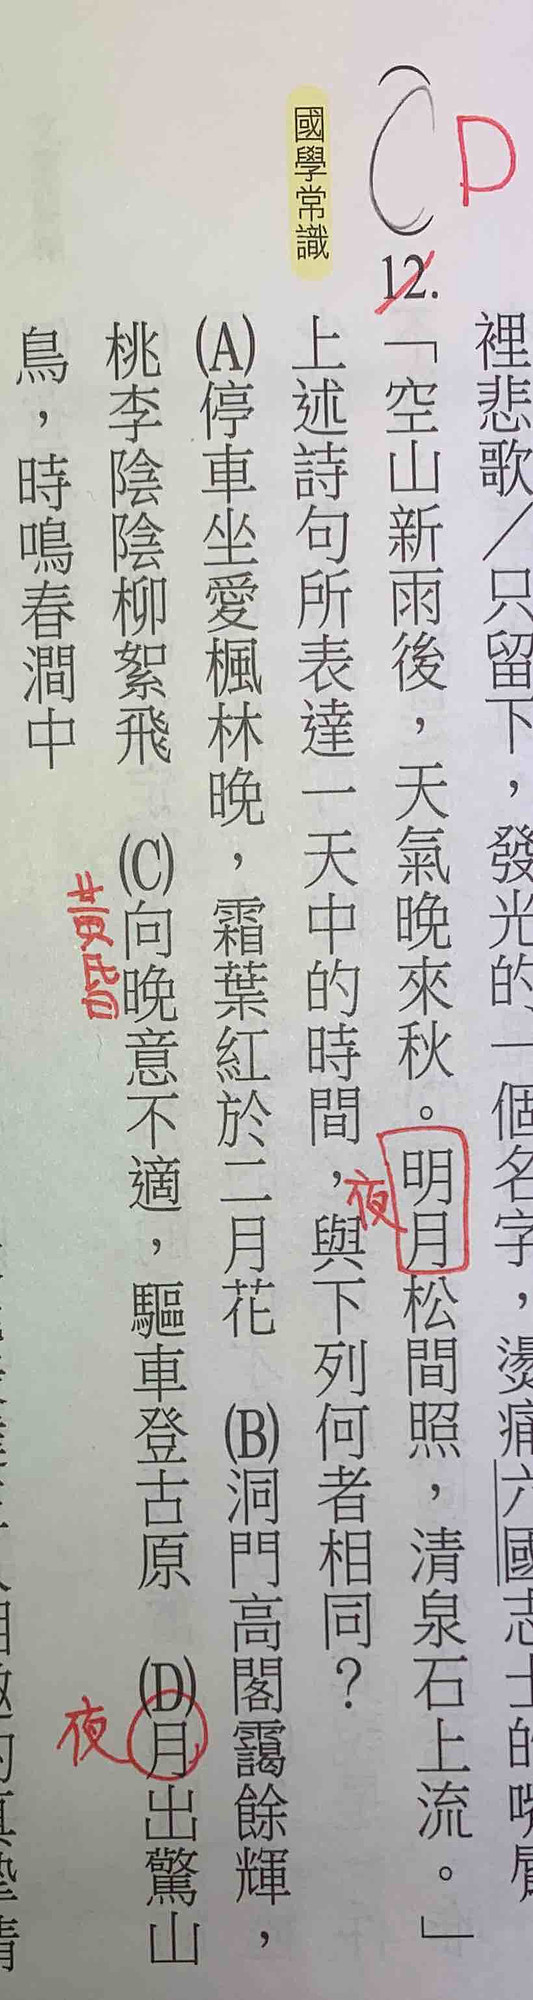 裡悲歌／只留下，發光的一個名字，燙痛六國志士的嘴
D
(C)12.「空山新雨後，天氣晚來秋。明月松間照，清泉石上流。」
夜
國學常識
上述詩句所表達一天中的時間，與下列何者相同？
(A)停車坐愛楓林晚，霜葉紅於二月花　(B)洞門高閣靄餘輝，
桃李陰陰柳絮飛　(C)向晚意不適，驅車登古原　(D)月出驚山
黃昏
夜
鳥，時鳴春澗中